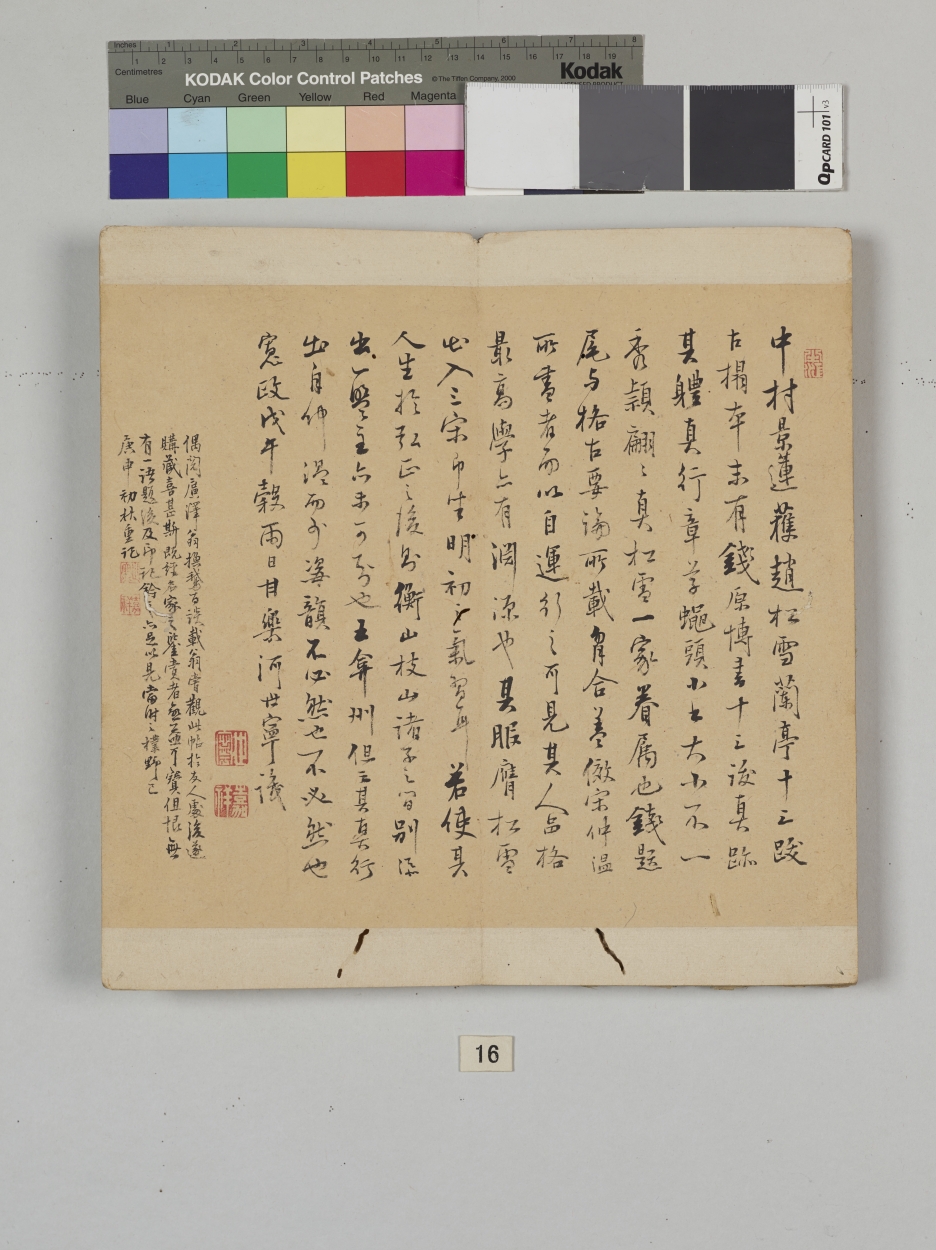 Inches 1 2 3 4 5 6 7 8
Centimetres 1 2 3 4 5 6 7 8 9 10 11 12 13 14 15 16 17 18 19
KODAK Color Control Patches © The Tiffen Company, 2000 Kodak
LICENSED PRODUCT
Blue Cyan Green Yellow Red Magenta
QPCARD 101 v3
中村景蓮獲趙松雪蘭亭十三跋
古搨本末有錢原博書十三跋真跡
其體真行章草蠅頭小大小不一
秀穎翩々真松雪一家眷属也錢題
尾与格古要論所載合蓋倣宋仲温
所書者而以自運行之可見其人品格
最高學亦有淵源也其服膺松雪
出入三宋即生明初之氣習耳若使其
人生於弘正之後則衡山枝山諸子之間別添
出一座亦未可知也王弇州但云其真行
出自仲温而乏姿韻不必然也不必然也
寛政戊午穀雨日甘樂河世寧識
偶閲廣澤翁撰載翁嘗觀此帖於友人處後遂
購藏喜甚斯既經名家之鑒賞者無益可寶但恨無
有一語題後及印記鈐之亦足以見當時之樸野已
庚申初秋重記
16